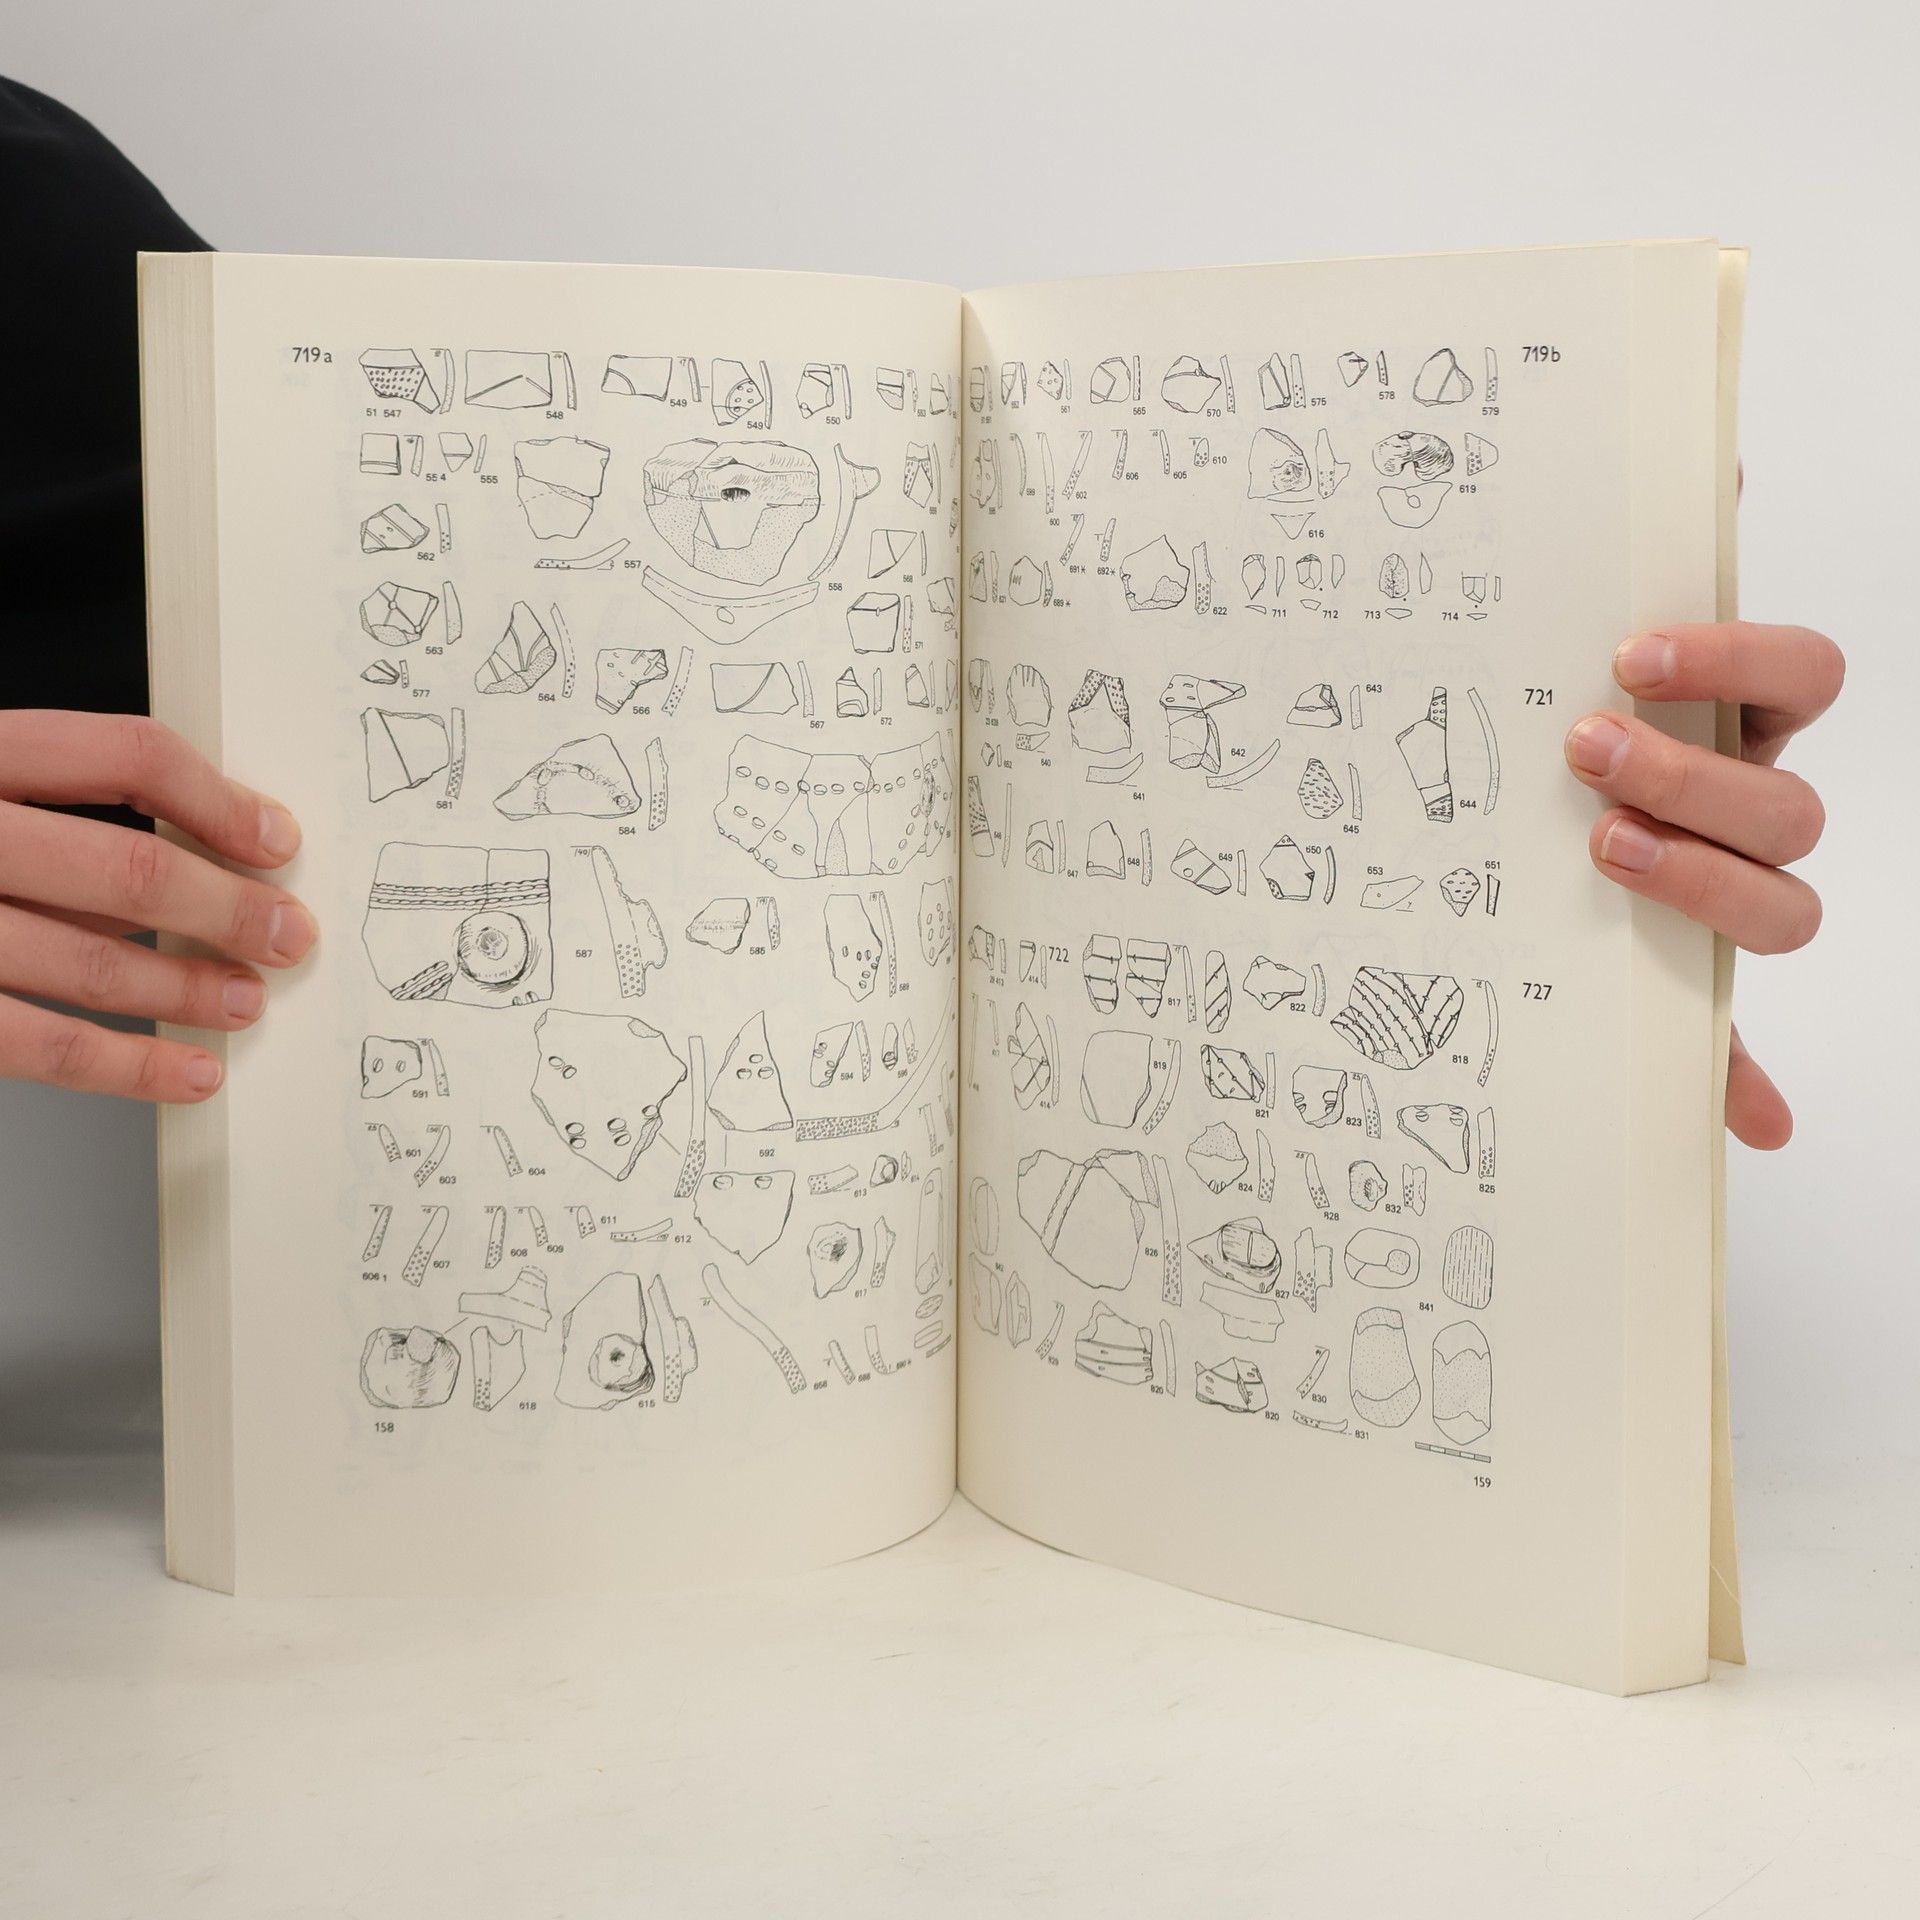 719a
51 547 548 549 549 550
554 555 557 558 568
562
563 564 566 567 571 572
577
581 584
587 585 589
591 592 594 596
601 603 604 613 614
606 1 607 608 609 611 612 617
618 615 656 686
158
719b
561 565 570 575 578 579
599 600 602 606 605 610 616 619
621 689* 691* 692* 622 711 712 713 714
721
652 640 641 642 643 644
645
647 648 649 650 653 651
722
727
414 817 822 818
414 819 821 823 825
826 824 828 832
827 841
829 820 820 830 831
159